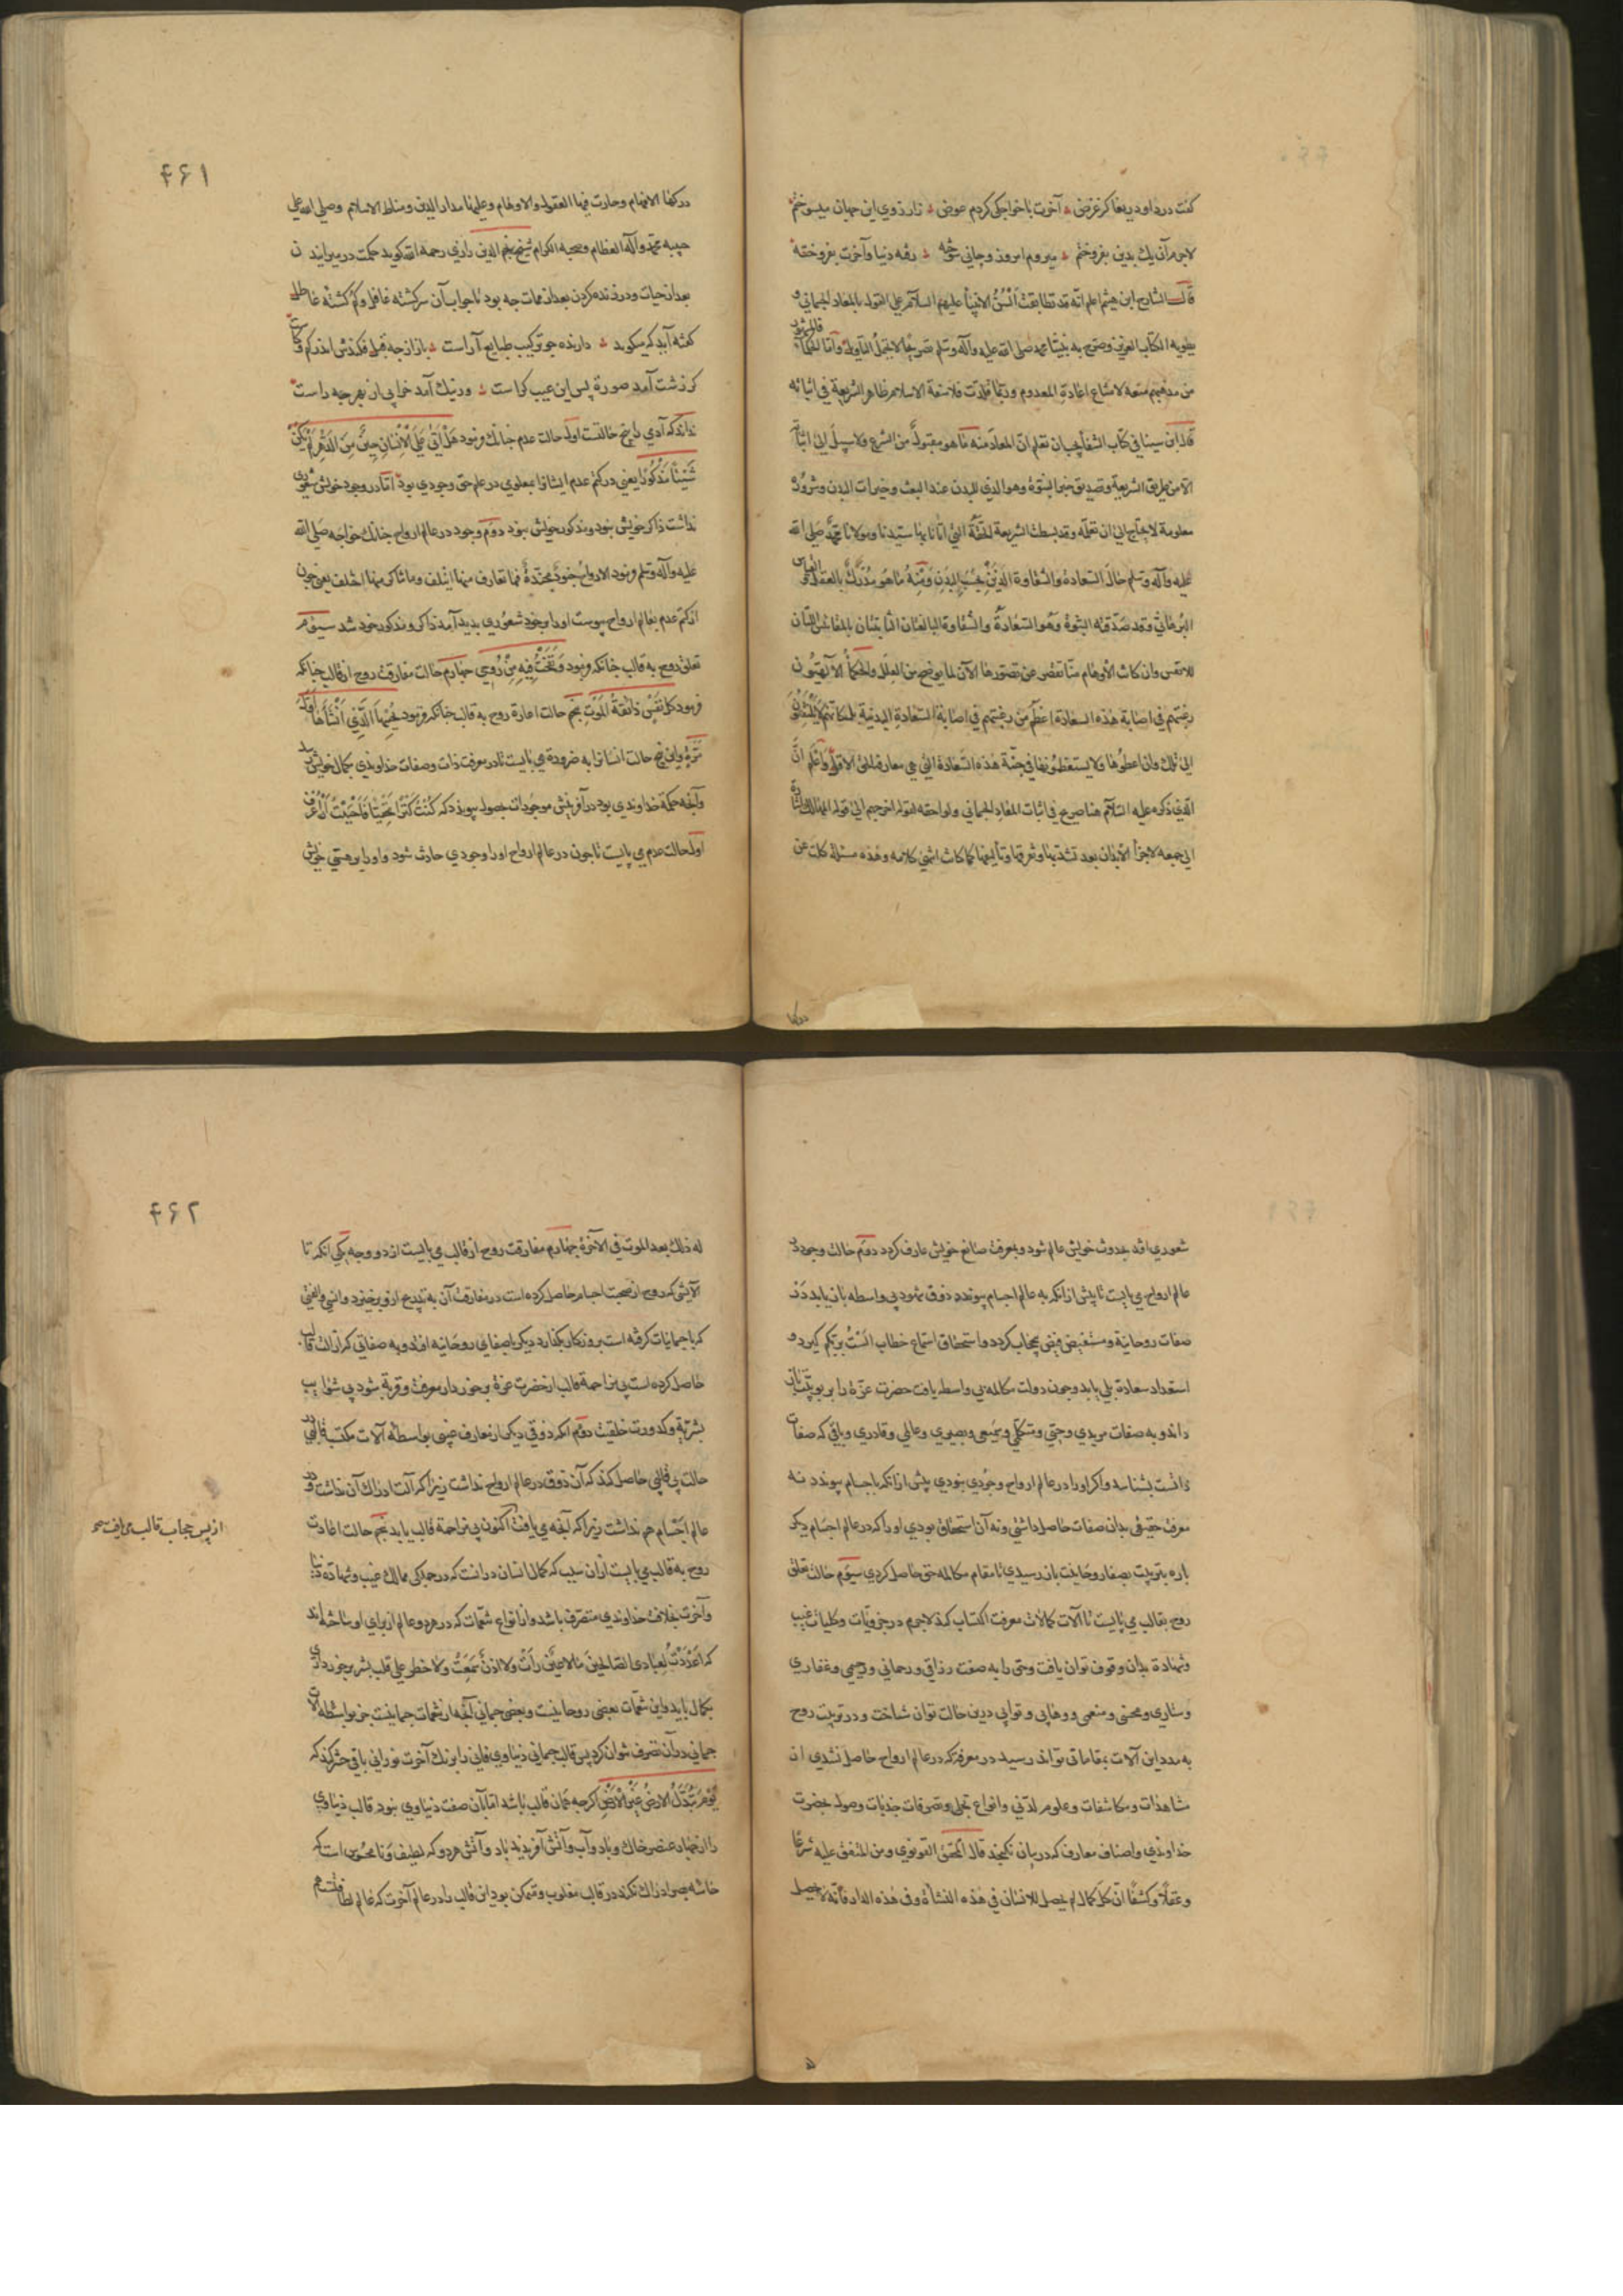 گفت دردا و دریغا کز غرض آخرت با خواجگی کردم عوض ناز ذوی این جهان میسوختم
لاجرم آن یک بدین بفروختم میروم امروز و جانی سوخته رفته دنیا و آخرت بفروخته
قال الشارح ابن هیثم اعلم انه قد تطابقت السن الانبیا علیهم السلام علی القول بالمعاد الجسمانی و
به الکتاب العزیز و صرح به نبینا محمد صلی الله علیه وآله وسلم تصریحا لا یحتمل التاویل واما الحکما فالمشهور
من مذهبهم منعه لامتناع اعادة المعدوم وربما قلدت فلاسفة الاسلام ظاهر الشریعة فی اثباته
قال ابن سینا فی کتاب الشفا یجب ان تعلم ان المعاد منه ما هو مقبول من الشرع ولا سبیل الی اثباته
الا من طریق الشریعة وتصدیق خبر النبوة وهو الذی للبدن عند البعث وخیرات البدن وشروره
معلومة لا یحتاج الی ان تعلمه وقد بسطت الشریعة الحقة التی اتانا بها سیدنا ومولانا محمد صلی الله
علیه وآله وسلم حال السعادة والشقاوة التی بحسب البدن ومنه ما هو مدرک بالعقل والقیاس
البرهانی وقد صدقته النبوة وهو السعادة والشقاوة البالغتان الثابتتان بالمقاییس اللتان
للانفس وان کانت الاوهام منا تقصر عن تصورها الآن لما یوضح من العلل والحکما الالهیون
رغبتهم فی اصابة هذه السعادة اعظم من رغبتهم فی اصابة السعادة البدنیة بل کانهم لا یلتفتون
الی تلک وان اعطوها ولا یستعظمونها فی جنبة هذه السعادة التی هی مقاربة الحق الاول واعلم ان
الذی ذکره علیه السلام هنا صریح فی اثبات المعاد الجسمانی ولواحقه
الی جمعه لاجزا الابدان بعد تشذبها وتفرقها وتالیفها کما کانت انتهی کلامه وهذه مسئلة کلت عن
درکها الافهام وحارت فیها العقول والاوهام وعلیها مدار الدین ومناط الاسلام وصلی الله علی
حبیبه محمد وآله العظام وصحبه الکرام شیخ نجم الدین رازی رحمه الله گوید حکمت در میرانیدن
بعد از حیات و در زنده کردن بعد از ممات چه بود تا جواب آن سرگشته غافل و گم گشته عاطل
گفته آید که میگوید دارنده چو ترکیب طبایع آراست باز از چه قبل فکندش اندر کم و کاست
گر زشت آمد صورة پس این عیب کراست ور نیک آمد خرابی از بهر چه راست
بداند که آدمی را پنج حالتست اول حالت عدم چنانک فرمود هل اتی علی الانسان حین من الدهر لم یکن
شیئا مذکورا یعنی در کتم عدم ایشانرا بمعلومی در علم حق وجودی بود اما در وجود خویش شعوری
نداشت ذاکر خویش نبود و مذکور خویش نبود دوم وجود در عالم ارواح چنانک خواجه صلی الله
علیه وآله وسلم فرمود الارواح جنود مجندة فما تعارف منها ائتلف وما تناکر منها اختلف یعنی چون
از کتم عدم بعالم ارواح پیوست اورا بوجود خود شعوری پدید آمد ذاکر و مذکور خود شد سیوم
تعلق روح به قالب چنانکه فرمود ونفخت فیه من روحی چهارم حالت مفارقت روح از قالب چنانکه
فرمود کل نفس ذائقة الموت پنجم حالت اعادة روح به قالب چنانکه فرمود یحییها الذی انشاها اول
مرة واین پنج حالت انسانرا به ضرورة می بایست تا در معرفت ذات وصفات خداوندی بکمال خویش رسد
وآنچه حکمة خداوندی بود در آفرینش موجودات بحصول پیوندد که کنت کنزا مخفیا فاحببت ان اعرف
اول حالت عدم می بایست تا چون در عالم ارواح اورا وجودی حادث شود و اورا بر هستی خویش
شعوری افتد بحدوث خویش عالم شود و بمعرفت صانع خویش عارف گردد دوم حالت وجود در
عالم ارواح می بایست تا پیش از انکه به عالم اجسام پیوندد ذوق شهود بی واسطه باز یابد در
صفات روحانیة و مستفیض فیض بیحجاب گردد و استحقاق استماع خطاب الست بربکم گیرد و
استعداد سعادة بلی یابد و چون دولت مکالمه بی واسطه یافت حضرت عزة را بربوبیت باز
داند و به صفات مریدی و حیی و متکلمی و سمیعی و بصیری و عالمی و قادری و باقی که صفات
ذاتست بشناسد و اگر اورا در عالم ارواح وجودی نبودی پیش از انکه باجسام پیوندد نه
معرفت حقیقی بدان صفات حاصل داشتی و نه آن استحقاق بودی اورا که در عالم اجسام دیگر
باره بتربیت بصفا روحانیت باز رسیدی تا مقام مکالمه حق حاصل کردی سیوم حالت تعلق
روح بقالب می بایست تا آلات کمالات معرفت اکتساب کند لاجرم در جزویات و کلیات غیب
و شهادة بدان وقوف توان یافت و حق را به صفت رزاقی و رحمانی و رحیمی و غفاری
و ستاری و محسنی و منعمی و وهابی و توابی درین حالت توان شناخت و در تربیت روح
به مدد این آلات بمقاماتی تواند رسید در معرفة که در عالم ارواح حاصل نشدی از
مشاهدات و مکاشفات و علوم لدنی و انواع تجلی و تصرفات جذبات و وصول بحضرت
خداوندی و اصناف معارف که در بیان نگنجد قال المحقق القونوی ومن المتفق علیه شرعا
وعقلا وکشفا ان کل کمال لم یحصل للانسان فی هذه النشاة وفی هذه الدار فانه لا یحصل
له ذلک بعد الموت فی الآخرة چهارم مفارقت روح از قالب می بایست از دو وجه یکی انکه تا
آلایشی که روح از صحبت اجسام حاصل کرده است در مفارقت آن به تدریج ازو برخیزد و انسی والفتی
که با جسمانیات گرفته است بروزگار بگذارد دیگر باصفای روحانیه افتد و به صفاتی که از آلت قالب
حاصل کرده است بی مزاحمة قالب از حضرت عزة برخوردار معرفت و قربة شود بی شوایب
بشریة و کدورت خلقیت دوم انکه ذوقی دیگر از معارف غیبی بواسطه آلات مکتسب قالبی در
حالت بی قالبی حاصل کند که آن ذوق در عالم ارواح نداشت زیرا که آلت ادراک آن نداشت و در
عالم اجسام هم نداشت زیرا که آنچه می یافت اکنون بی مزاحمة قالب یابد پنجم حالت اعادت
از پس حجاب قالب می یافت
روح به قالب می بایست از آن سبب که کمال انسان در انست که در جملگی ممالک غیب و شهادة دنیا
و آخرت بخلافت خداوندی متصرف باشد و از انواع تنعمات که در هر دو عالم از برای او ساخته اند
که اعددت لعبادی الصالحین ما لا عین رأت ولا اذن سمعت ولا خطر علی قلب بشر برخورداری
بکمال یابد و این تنعمات بعضی روحانیست و بعضی جسمانی آنچه از تنعمات جسمانیست جز بواسطه آلات
جسمانی در آن تصرف نتوان کرد پس قالب جسمانی دنیاوی فانی را برنگ آخرت نورانی باقی حشر کند که
یوم تبدل الارض غیر الارض اگرچه همان قالب باشد اما بآن صفت دنیاوی نبود قالب دنیاوی
را از چهار عنصر خاک و باد و آب و آتش آفریدند باد و آتش هر دو که لطیف و نامحسوس است که
حاسه بصر ادراک نکند در قالب مغلوب و متمکن بود این قالب را در عالم آخرت که عالم لطافتست هم